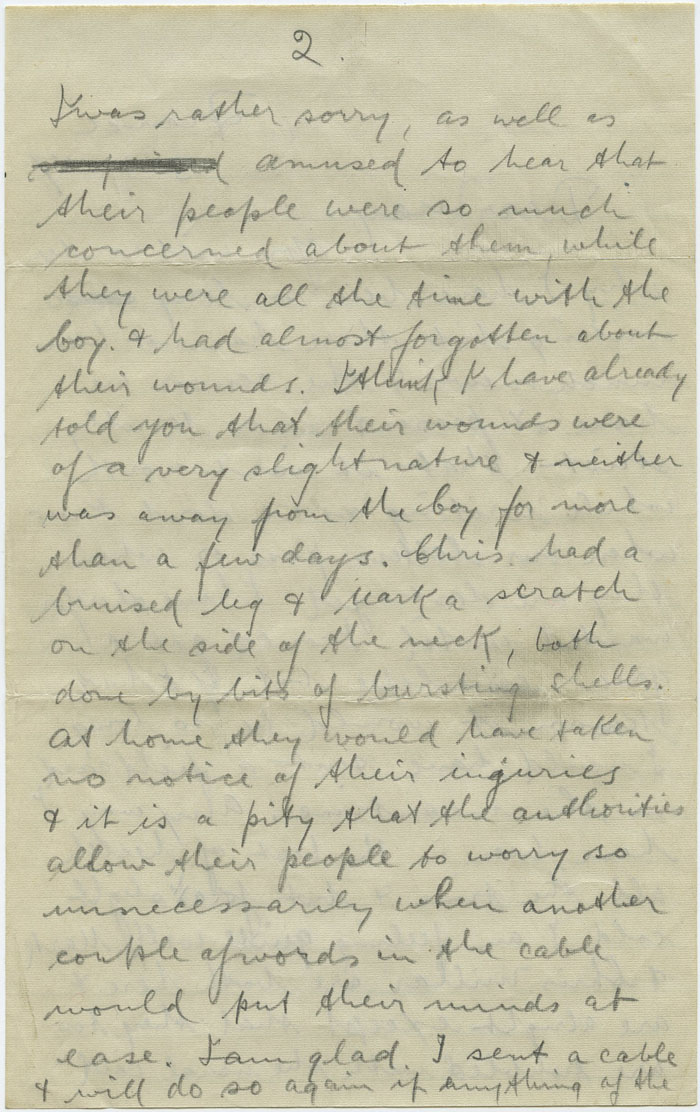 2.
I was rather sorry, as well as
amused to hear that
their people were so much
concerned about them, while
they were all the time with the
boy. & had almost forgotten about
their wounds. I think I have already
told you that their wounds were
of a very slight nature & neither
was away from the boy for more
than a few days. Chris. had a
bruised leg & Mark a scratch
on the side of the neck, both
done by bits of bursting shells.
At home they would have taken
no notice of their injuries
& it is a pity that the authorities
allow their people to worry so
unnecessarily when another
couple of words in the cable
would put their minds at
ease. I am glad I sent a cable
& will do so again if anything of the